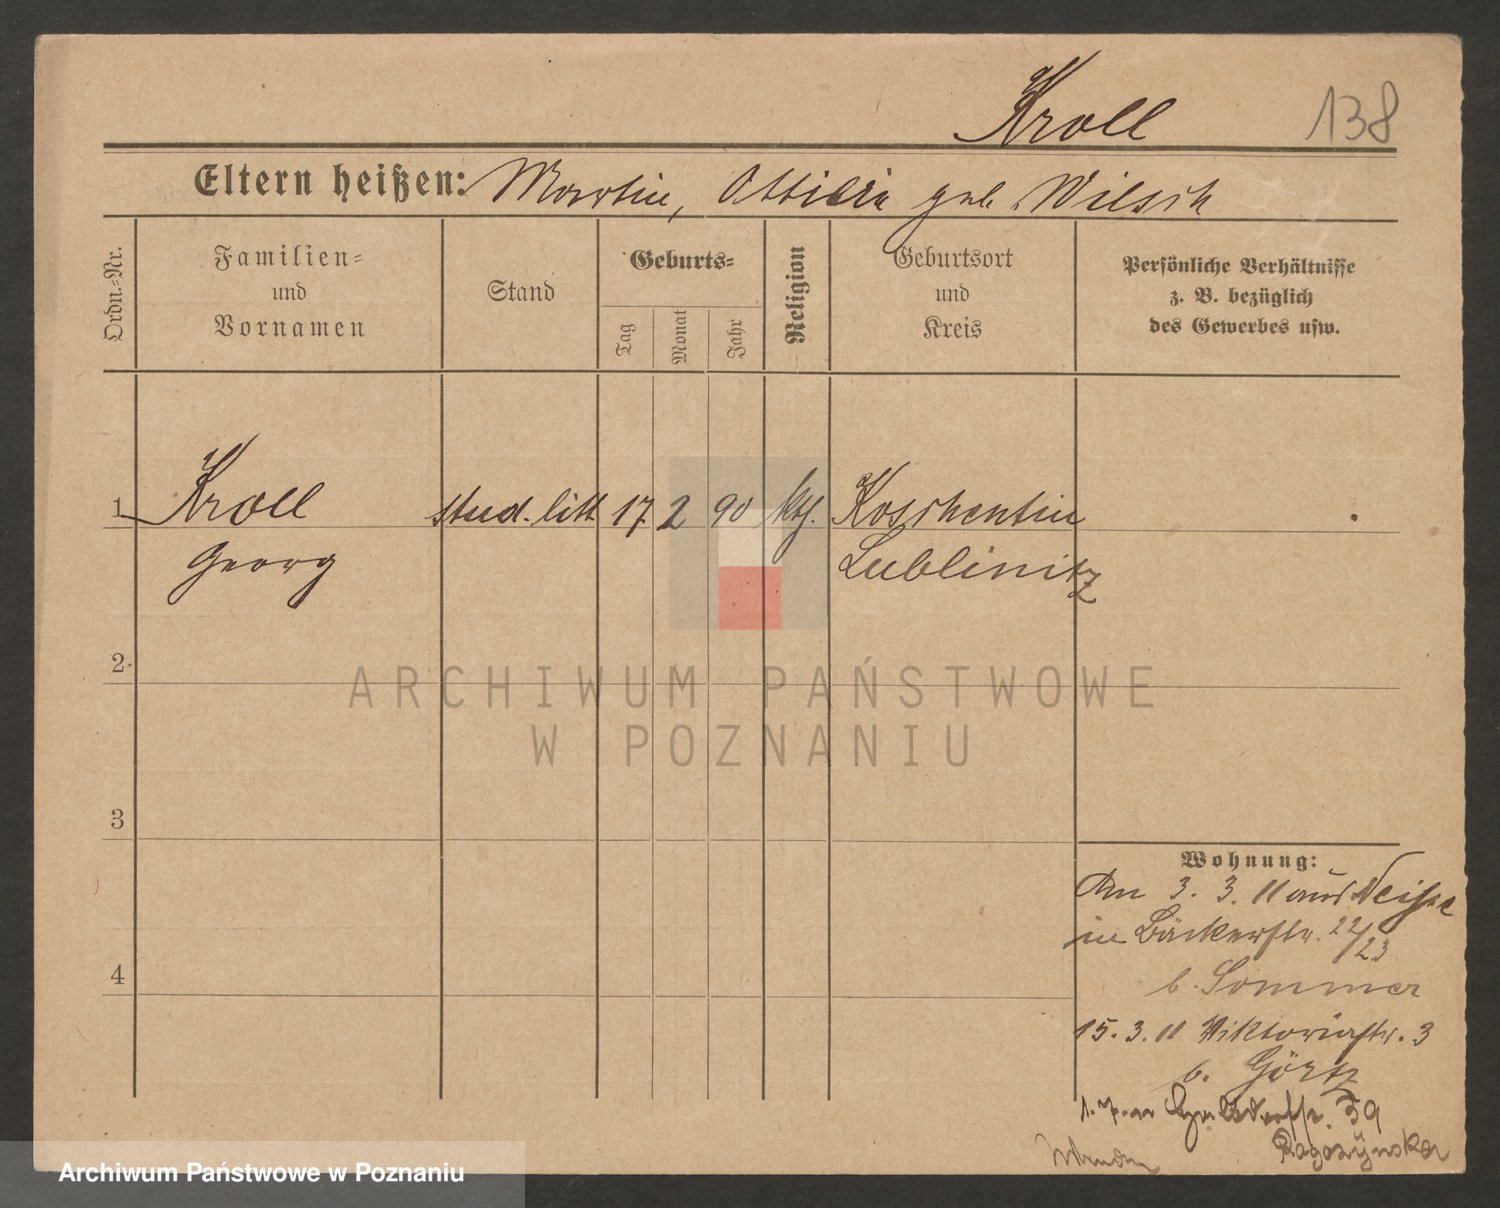 Kroll 138
Eltern heißen: Martin, Ottilie geb. Wilsch
Ordn.-Nr.
Familien-
und
Vornamen
Stand
Geburts-
Tag
Monat
Jahr
Religion
Geburtsort
und
Kreis
Persönliche Verhältnisse
z. B. bezüglich
des Gewerbes usw.
1 Kroll stud. litt 17 2 90 kth. Koschentin
Georg Lublinitz
2
3
4
Wohnung:
Am 3. 3. 11 aus Neisse
in Bäckerstr. 22/23
b. Sommer
15. 3. 11 Viktoriastr. 3
b. Görtz
39
ARCHIWUM PAŃSTWOWE
W POZNANIU
Archiwum Państwowe w Poznaniu